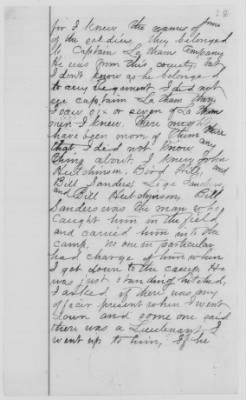 for I knew the names of some
of the soldiers. they belonged
to Captain La tham Company
He was from this county, but
I don't know as he belonged
to any Regiment I did not
see captain La tham there
I saw six or seven La tham
men I knew. There must
have been more of them there
that I did not know any
thing about. I knew John
Hutchinson, Hill,
Bill Sanders, Lige
and Bill Hutchinson, Bill
Sanders was the man that
caught him in the field,
and carried him into the
camp. No one in particular
had charge of him when
I got down to the camp. He
was just standing hitched,
I asked if there was any
officer present when I went
down and some one said
there was a Lieutenant, I
went up to him, If he